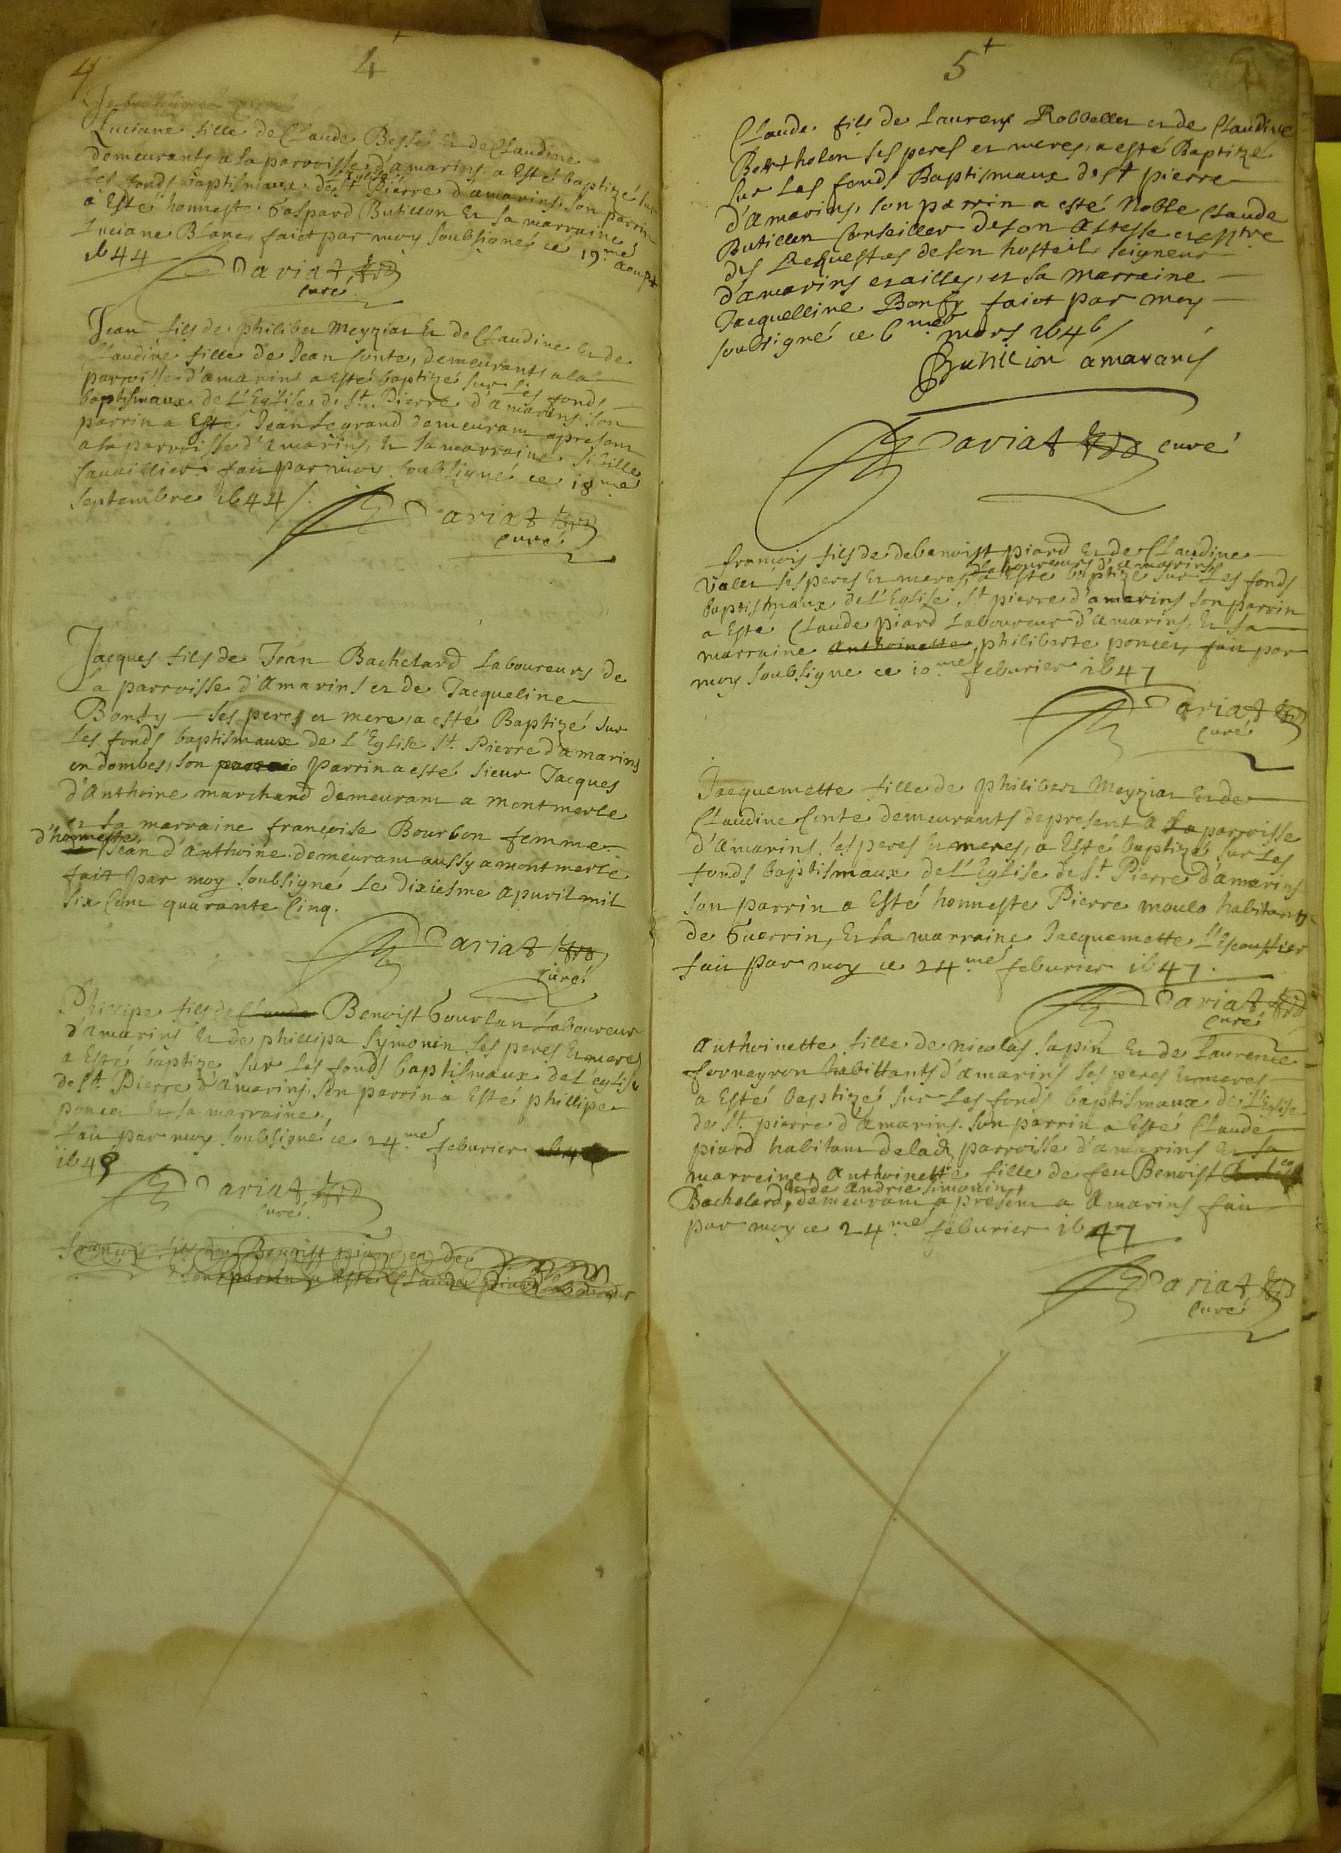 4
4
Luciane fille de Claude Besse Et de Claudine
demeurants a la parroisse d'amarins a Esté baptizé sur
les fonds Baptismaux de l'Eglise St Pierre d'amarins, son parrin
a Esté honneste Gaspard Butillon Et sa marraine
Luciane Blanc, faict par moy soubsigné ce 19me aoust
1644
Dariat
Curé
Jean fils de philiber Meyziat Et de Claudine Et de
Claudine fille de Jean Conte, demeurants a la
parroisse d'amarins a Esté baptizé sur les fonds
baptismaux de l'Eglise de St. Pierre d'amarins son
parrin a Esté Jean Legrand demeurant apresent
a la parroisse d'amarins, Et sa marraine Sibille
fait par moy soubsigné ce 18me
Septembre 1644
Dariat
Curé
Jacques fils de Jean Bachelard Laboureurs de
la parroisse d'Amarins et de Jacqueline
Bonfy ses peres et mere, a esté Baptizé sur
les fonds baptismaux de l'Eglise St. Pierre d'amarins
en dombes, son parrin a esté sieur Jacques
d'Anthoine marchand demeurant a montmerle
et sa marraine françoise Bourbon femme
d'honneste Jean d'Anthoine demeurant aussy a montmerle
fait par moy soubsigné Le dixiesme apvril mil
six Cent quarante Cinq.
Dariat
Curé
Phillipe fils de Claude Benoist Gourlan Laboureur
d'amarins Et de phillipa Symonin ses peres Et meres
a Esté baptize sur les fonds baptismaux de l'eglise
de St. Pierre d'amarins, son parrin a Esté phillipe
poncet Et sa marraine,
fait par moy soubsigné ce 24me feburier
1645
Dariat
Curé
françois fils de Benoist piard et de
son parrin a Esté Claude piard Laboureur
5
Claude fils de Laurens Robbellet et de Claudine
Berthelon ses peres et meres, a esté Baptizé
sur les fonds Baptismaux de St pierre
d'amarins, son parrin a esté Noble Claude
Butillon Conseiller de son Altesse et Mtre
des Requestes de son hostel, seigneur
d'amarins et ailles, et sa Marraine
Jacquelline Bonfy faict par moy
soubsigné ce 6me mars 1646
Buttillion amarans
Dariat curé
françois fils de debenoist piard Et de Claudine
Valet ses peres Et meres, Laboureurs d'amarins, a Esté baptizé sur les fonds
baptismaux de l'Eglise St pierre d'amarins son parrin
a Esté Claude piard Laboureur d'amarins, Et sa
marraine Anthoinette philiberte poncet, fait par
moy soubsigne ce 10me feburier 1647
Dariat
Curé
Jacquemette fille de philibert Meyziat Et de
Claudine Conte demeurants depresent a La parroisse
d'Amarins, ses peres Et meres, a Esté baptizé sur les
fonds baptismaux de l'Eglise de St. Pierre d'amarins
son parrin a Esté honneste Pierre moulo habitant
de Guerrin, Et sa marraine Jacquemette L'Escoussier
fait par moy ce 24me feburier 1647.
Dariat
Curé
Anthoinette fille de nicolas sapin Et de Laurence
forneyron habittants d'amarins ses peres Et meres
a Esté baptizé sur les fonds baptismaux de l'Eglise
de St. pierre d'Amarins. son parrin a Esté Claude
piard habitant de lad parroisse d'amarins Et sa
marraine Anthoinette fille de feu Benoist
Bachelard, Et de Andrie simonin demeurant a present a Amarins fait
par moy ce 24me feburier 1647
Dariat
Curé